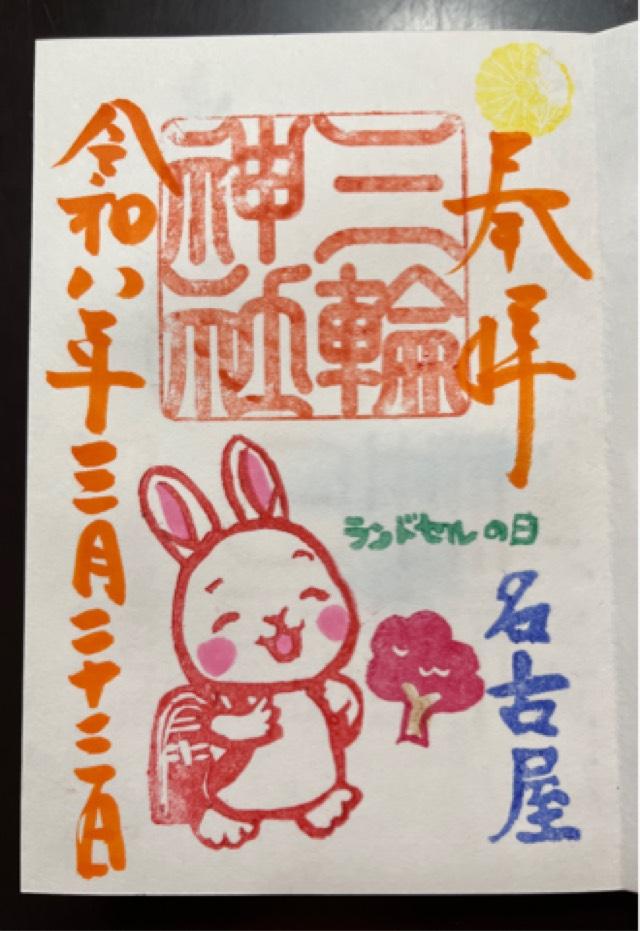 奉拝
三輪
神社
ランドセルの日
名古屋
令和八年三月二十二日